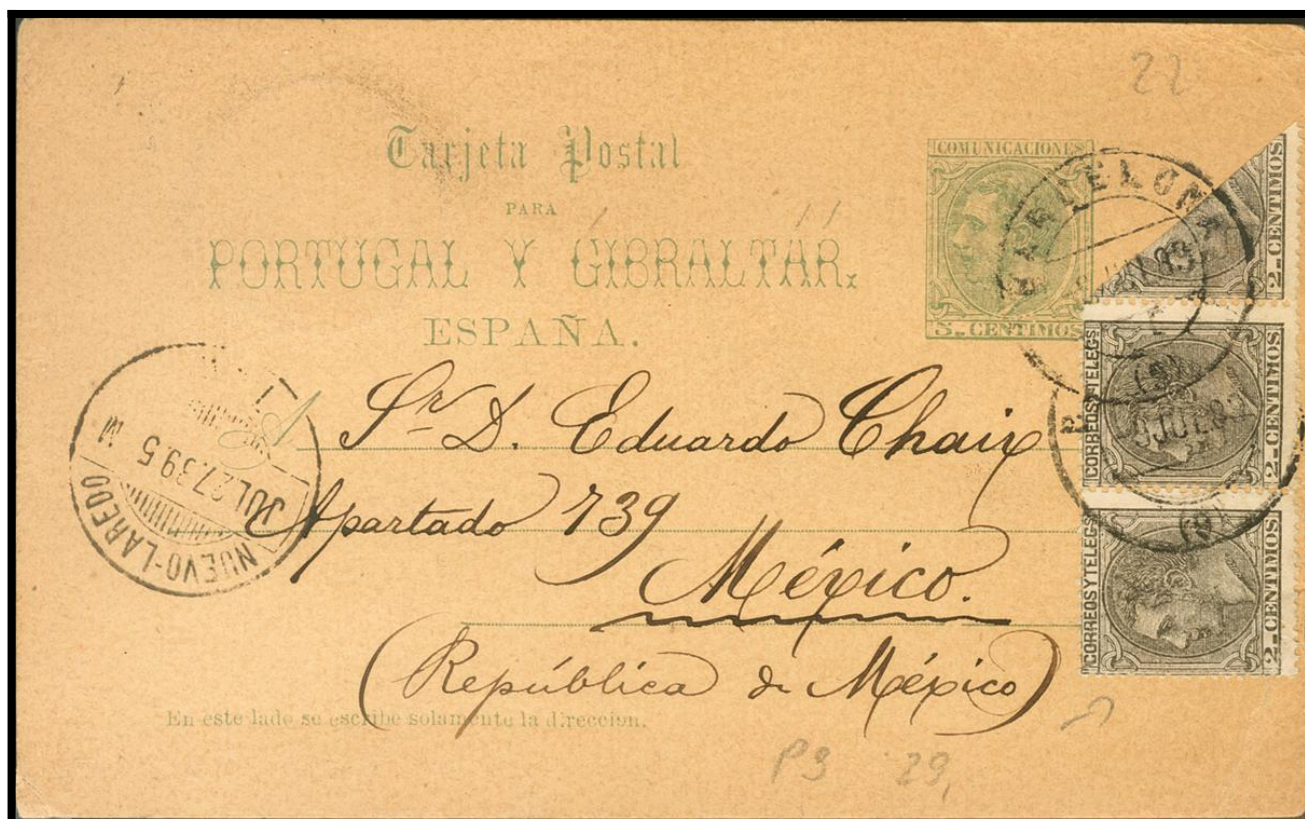 22
Tarjeta Postal
PARA
PORTUGAL Y GIBRALTAR.
ESPAÑA.
COMUNICACIONES
5 CENTIMOS
2 CENTIMOS
BARCELONA
CORREOS Y TELEGS
2 CENTIMOS
CORREOS Y TELEGS
2 CENTIMOS
NUEVO-LAREDO
JUL 27.89.5
Sr. D. Eduardo Chaix
Apartado 739
México.
(República de México)
En este lado se escribe solamente la direccion.
P3 29,